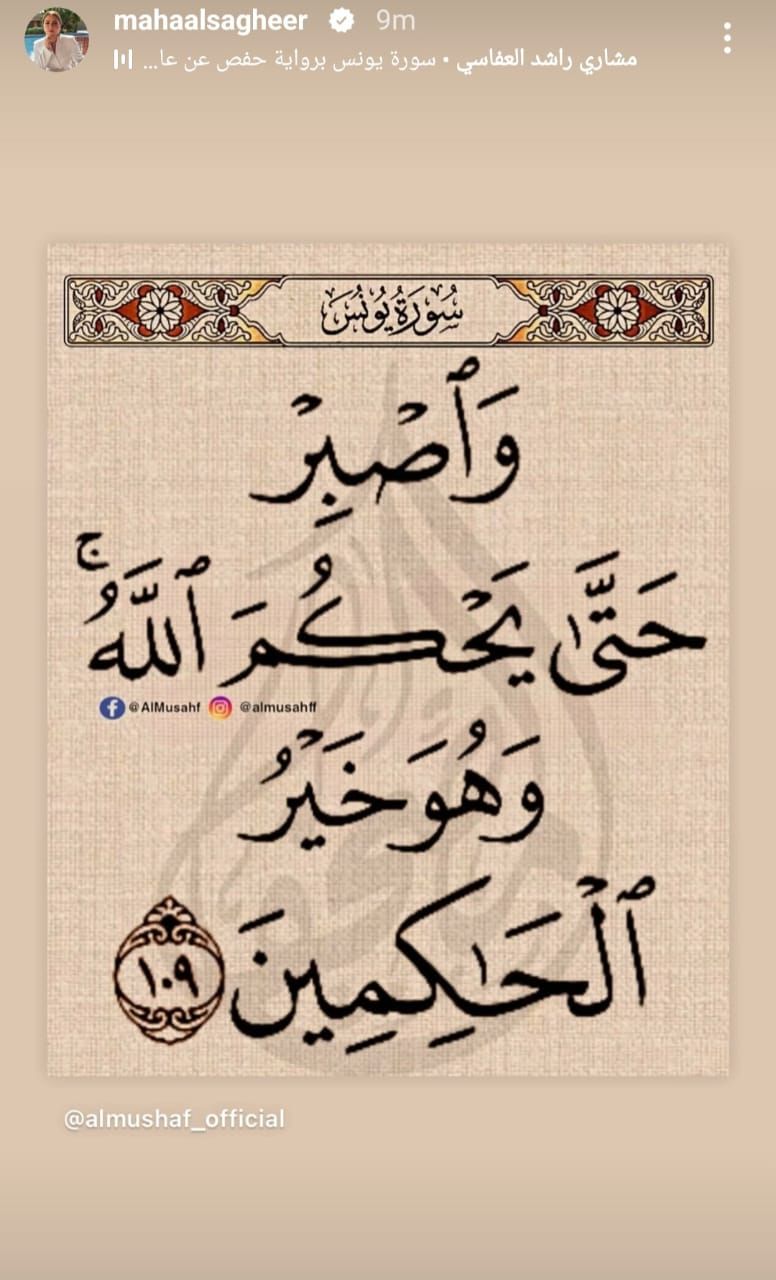 mahaalsagheer 9m
مشاري راشد العفاسي • سورة يونس برواية حفص عن عا...
سُورَةُ يُونُسَ
وَٱصۡبِرۡ
حَتَّىٰ يَحۡكُمَ ٱللَّهُۚ
@AlMusahf @almusahff
وَهُوَ خَيۡرُ
ٱلۡحَٰكِمِينَ ١٠٩
@almushaf_official